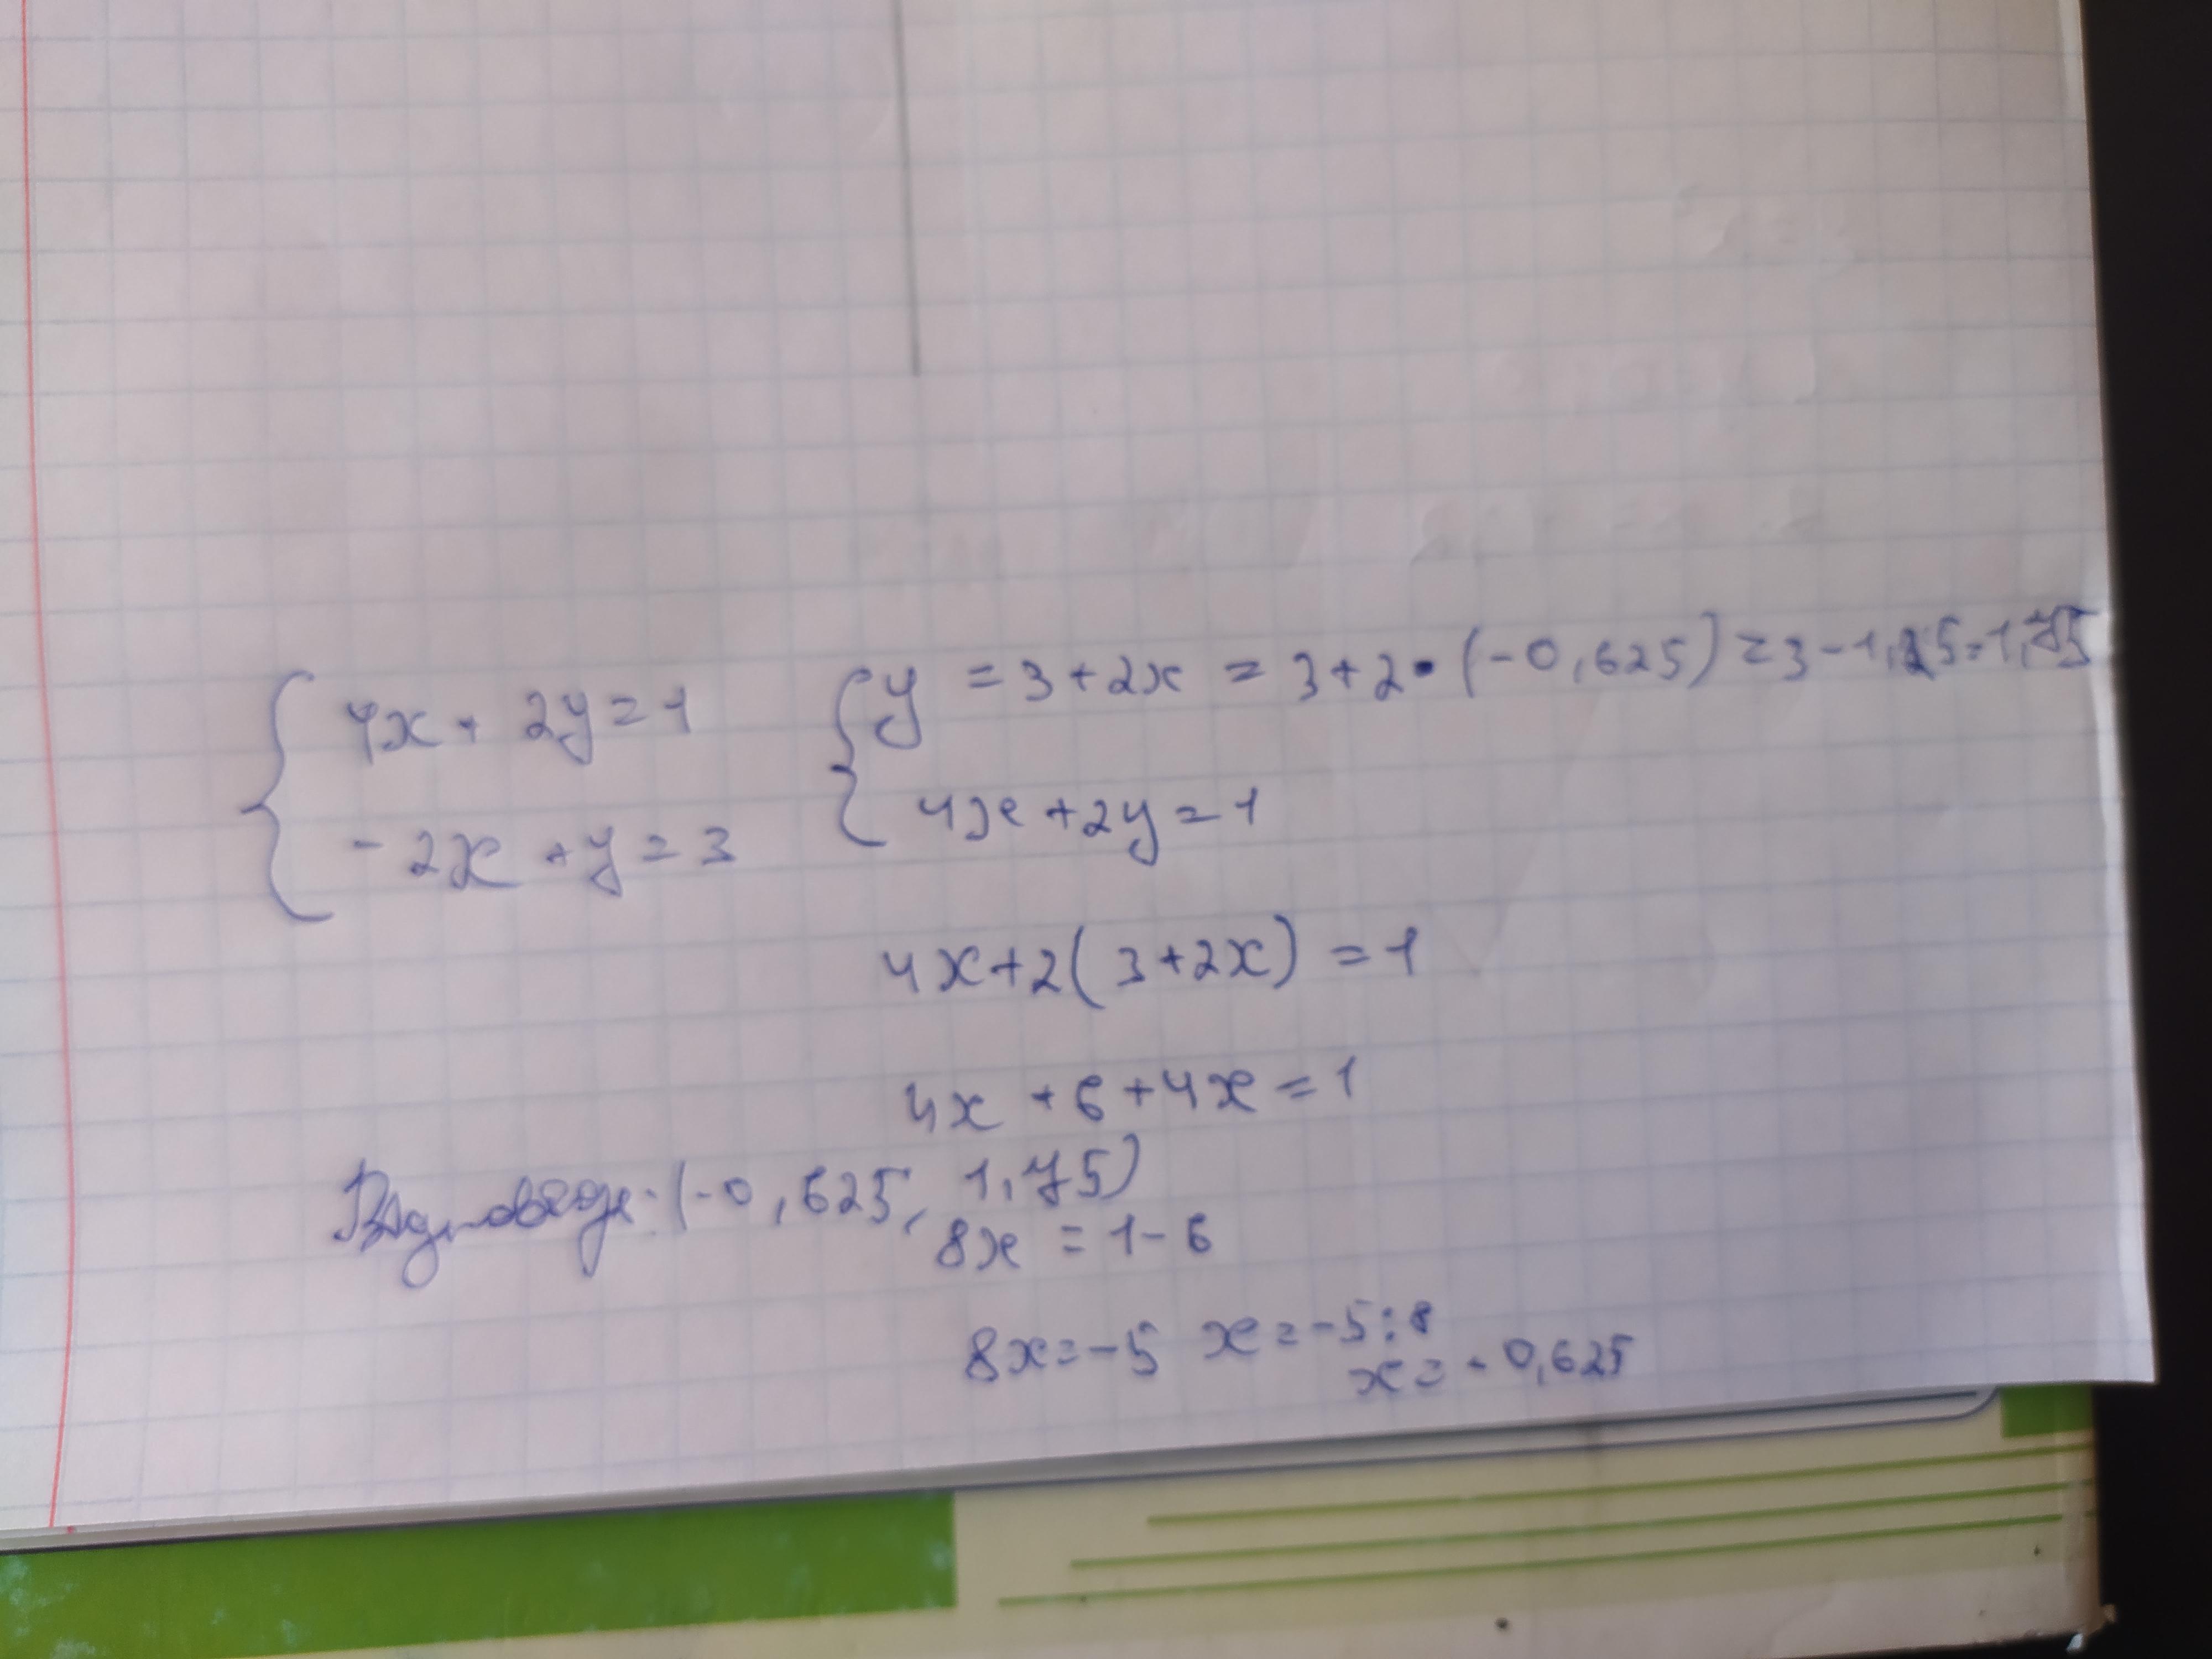 { 4x + 2y = 1
- 2x + y = 3
{ y = 3 + 2x = 3 + 2 • (-0,625) = 3 - 1,25 = 1,75
4x + 2y = 1
4x + 2 ( 3 + 2x ) = 1
4x + 6 + 4x = 1
Відповідь: (-0,625, 1,75)
8x = 1 - 6
8x = -5 x = -5 : 8
x = - 0,625